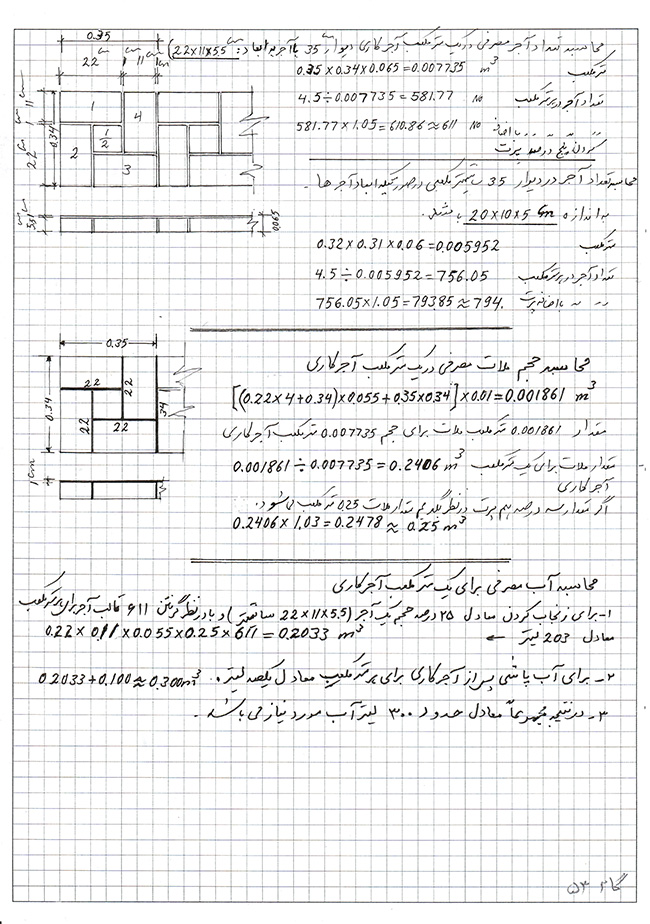 محاسبه تعداد آجر مصرفی در یک متر مکعب آجرکاری دیوار 35 با آجر به ابعاد: 22x11x5.5 cm)
متر مکعب 0.35 x 0.34 x 0.065 = 0.007735 m³
تعداد آجر در متر مکعب 4.5 ÷ 0.007735 = 581.77 No
با اضافه 581.77 x 1.05 = 610.86 ≈ 611 No
کردن پنج درصد پرت
محاسبه تعداد آجر در دیوار 35 سانتیمتر مکعبی در صورتیکه ابعاد آجرها
به اندازه 20x10x5 cm باشد.
متر مکعب 0.32 x 0.31 x 0.06 = 0.005952
تعداد آجر در متر مکعب 4.5 ÷ 0.005952 = 756.05
با اضافه پرت 756.05 x 1.05 = 793.85 ≈ 794.
0.35
22 cm 11 cm 1 cm
11 cm
1
0.34
22 cm
1
4
2
1/2
3
5.5 cm
0.065
محاسبه حجم ملات مصرفی در یک متر مکعب آجرکاری
[(0.22 x 4 + 0.34) x 0.055 + 0.35 x 0.34] x 0.01 = 0.001861 m³
مقدار 0.001861 متر مکعب ملات برای حجم 0.007735 متر مکعب آجرکاری
مقدار ملات برای یک متر مکعب 0.001861 ÷ 0.007735 = 0.2406 m³
آجرکاری
اگر مقدار سه درصد هم پرت در نظر بگیریم مقدار ملات 0.25 متر مکعب می‌شود.
0.2406 x 1.03 = 0.2478 ≈ 0.25 m³
0.35
0.34
22
22
22
22
34
1 cm
محاسبه آب مصرفی برای یک متر مکعب آجرکاری
۱- برای زنجاب کردن معادل ۲۵ درصد حجم یک آجر (22x11x5.5 سانتیمتر) و با در نظر گرفتن ۶۱۱ قالب آجر برای هر متر مکعب
معادل 203 لیتر ← 0.22 x 0.11 x 0.055 x 0.25 x 611 = 0.2033 m³
۲- برای آب پاشی پس از آجرکاری برای هر متر مکعب معادل یکصد لیتر. 0.2033 + 0.100 ≈ 0.300 m³
۳- در نتیجه مجموعاً معادل حدود ۳۰۰ لیتر آب مورد نیاز می باشد.
۵۳